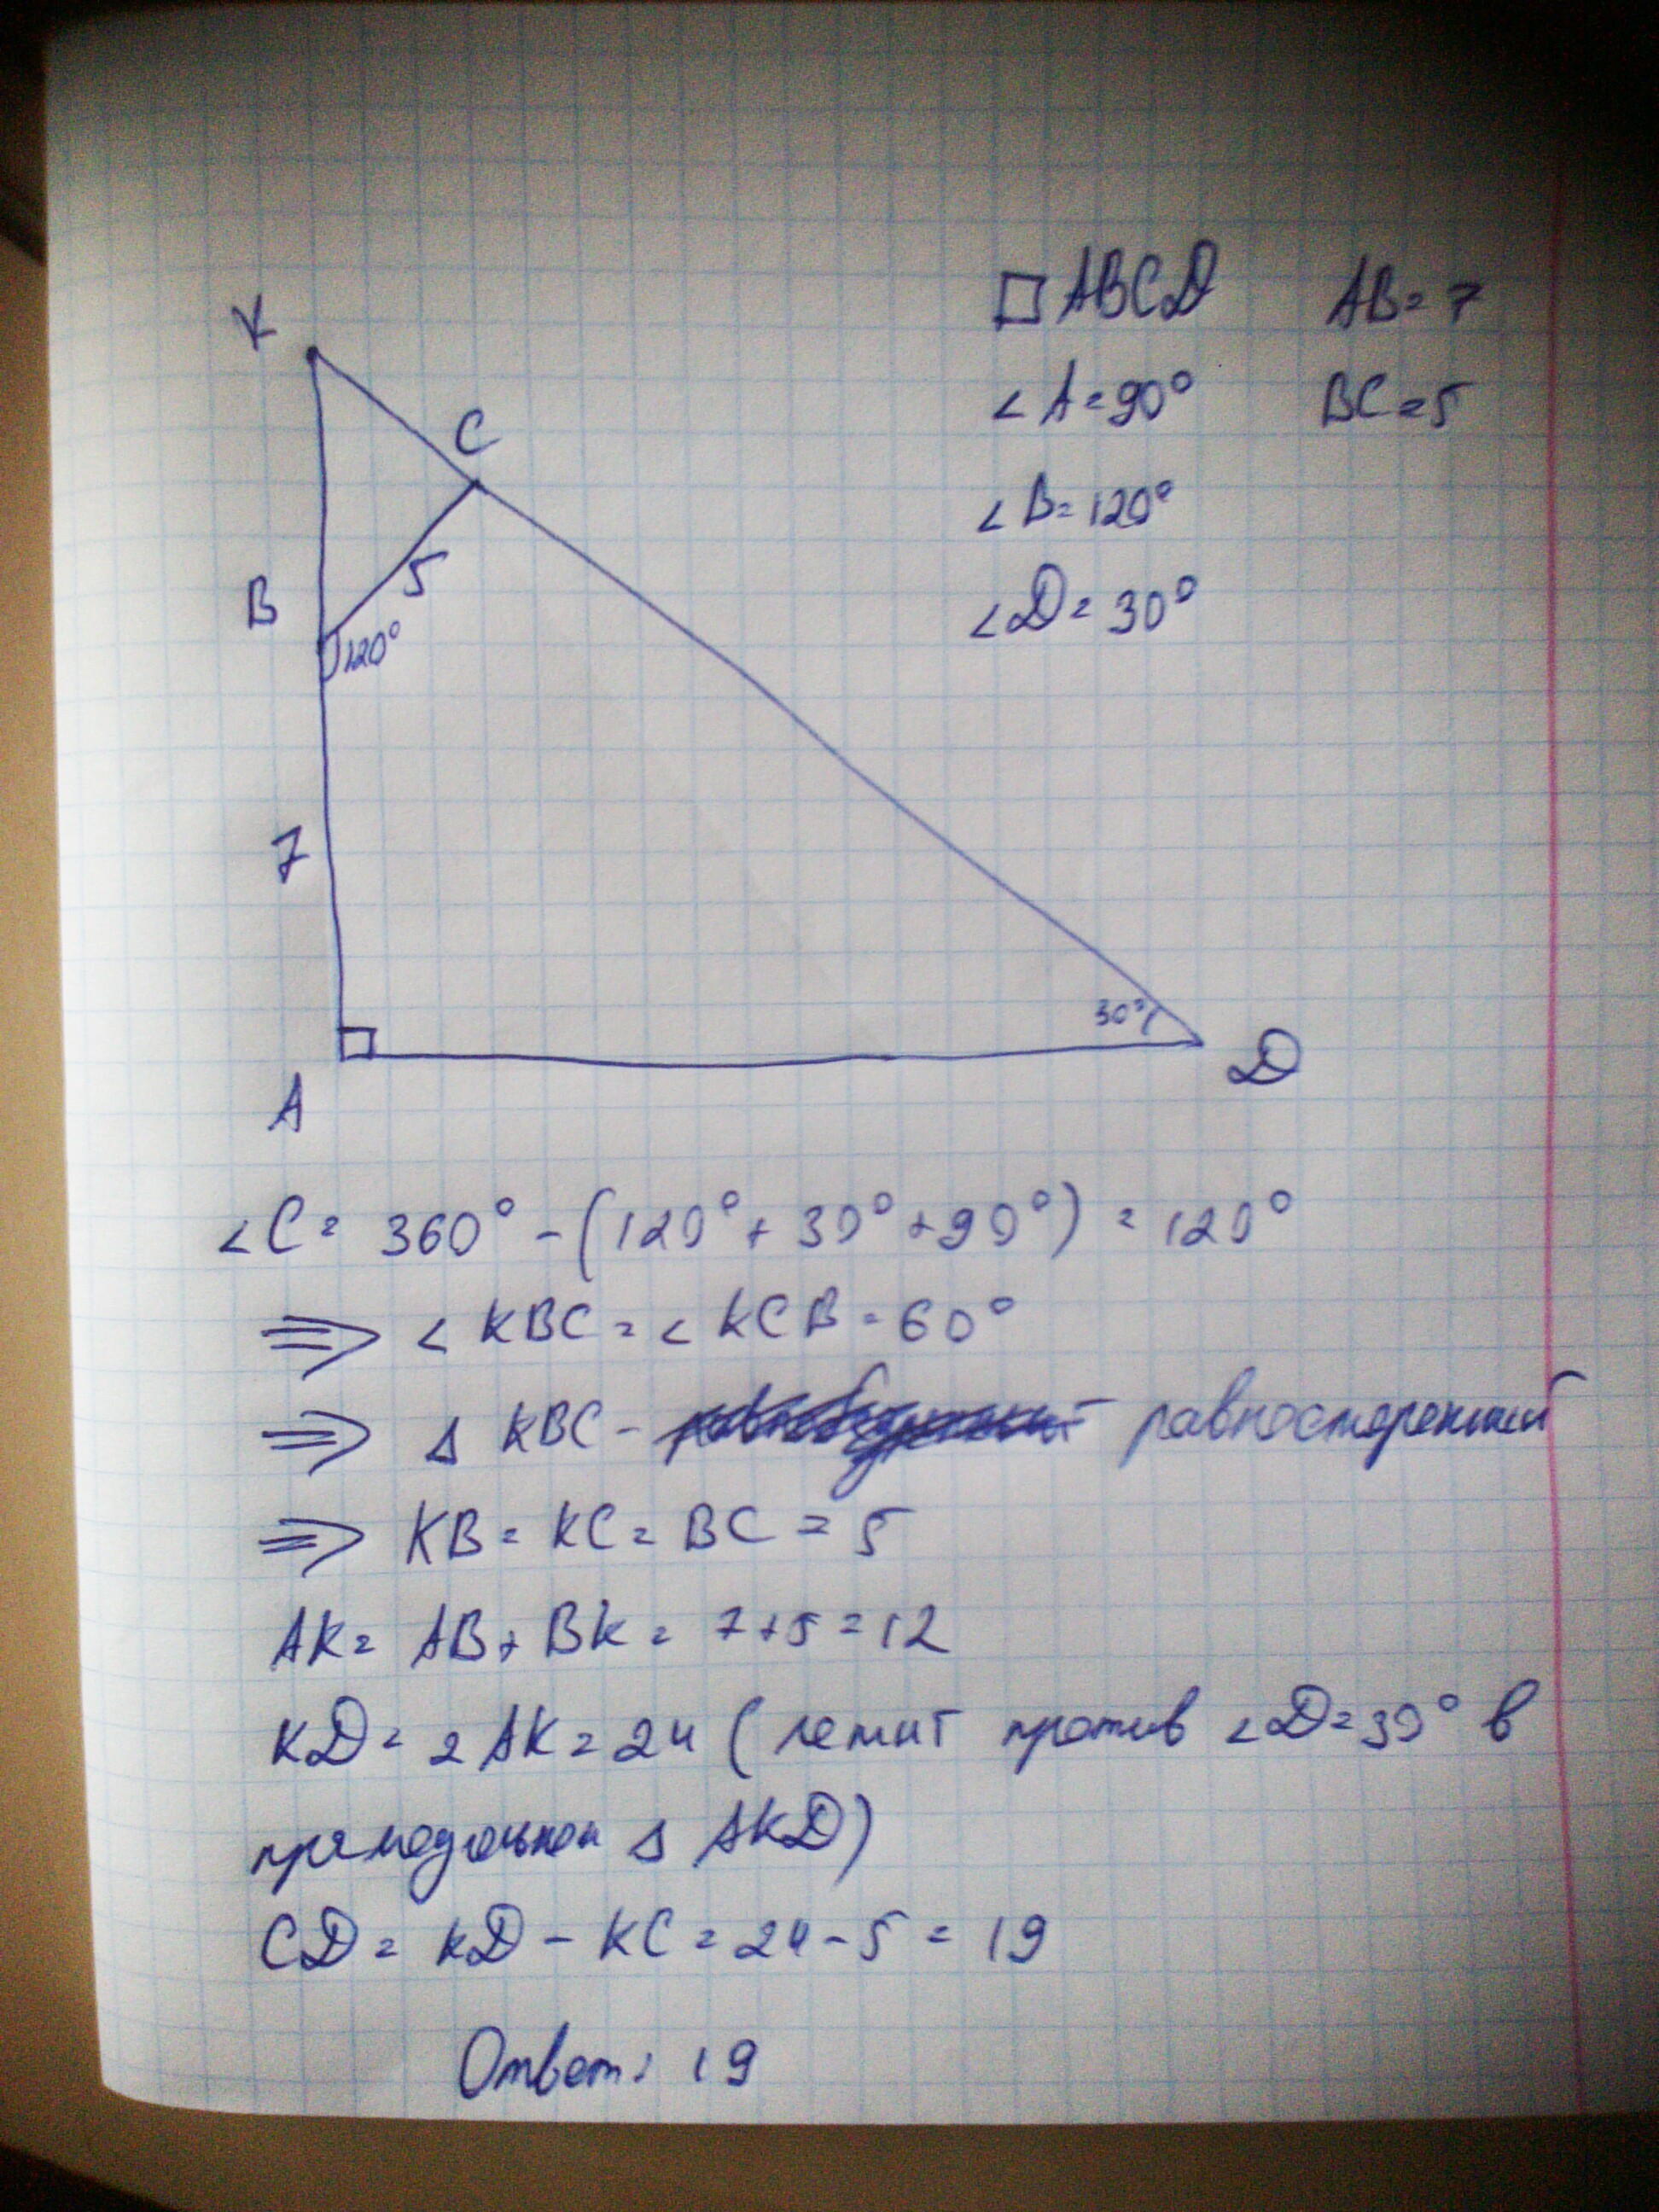 □ABCD AB=7
∠A=90° BC=5
∠B=120°
∠D=30°
K
C
B
5
120°
7
30°
A
D
∠C= 360°-(120°+30°+90°)=120°
⇒ ∠KBC=∠KCB=60°
⇒ Δ KBC- равносторонний
⇒ KB=KC=BC=5
AK= AB+BK= 7+5=12
KD= 2AK=24 (лежит против ∠D=30° в
прямоугольном Δ AKD)
CD= KD-KC=24-5=19
Ответ: 19